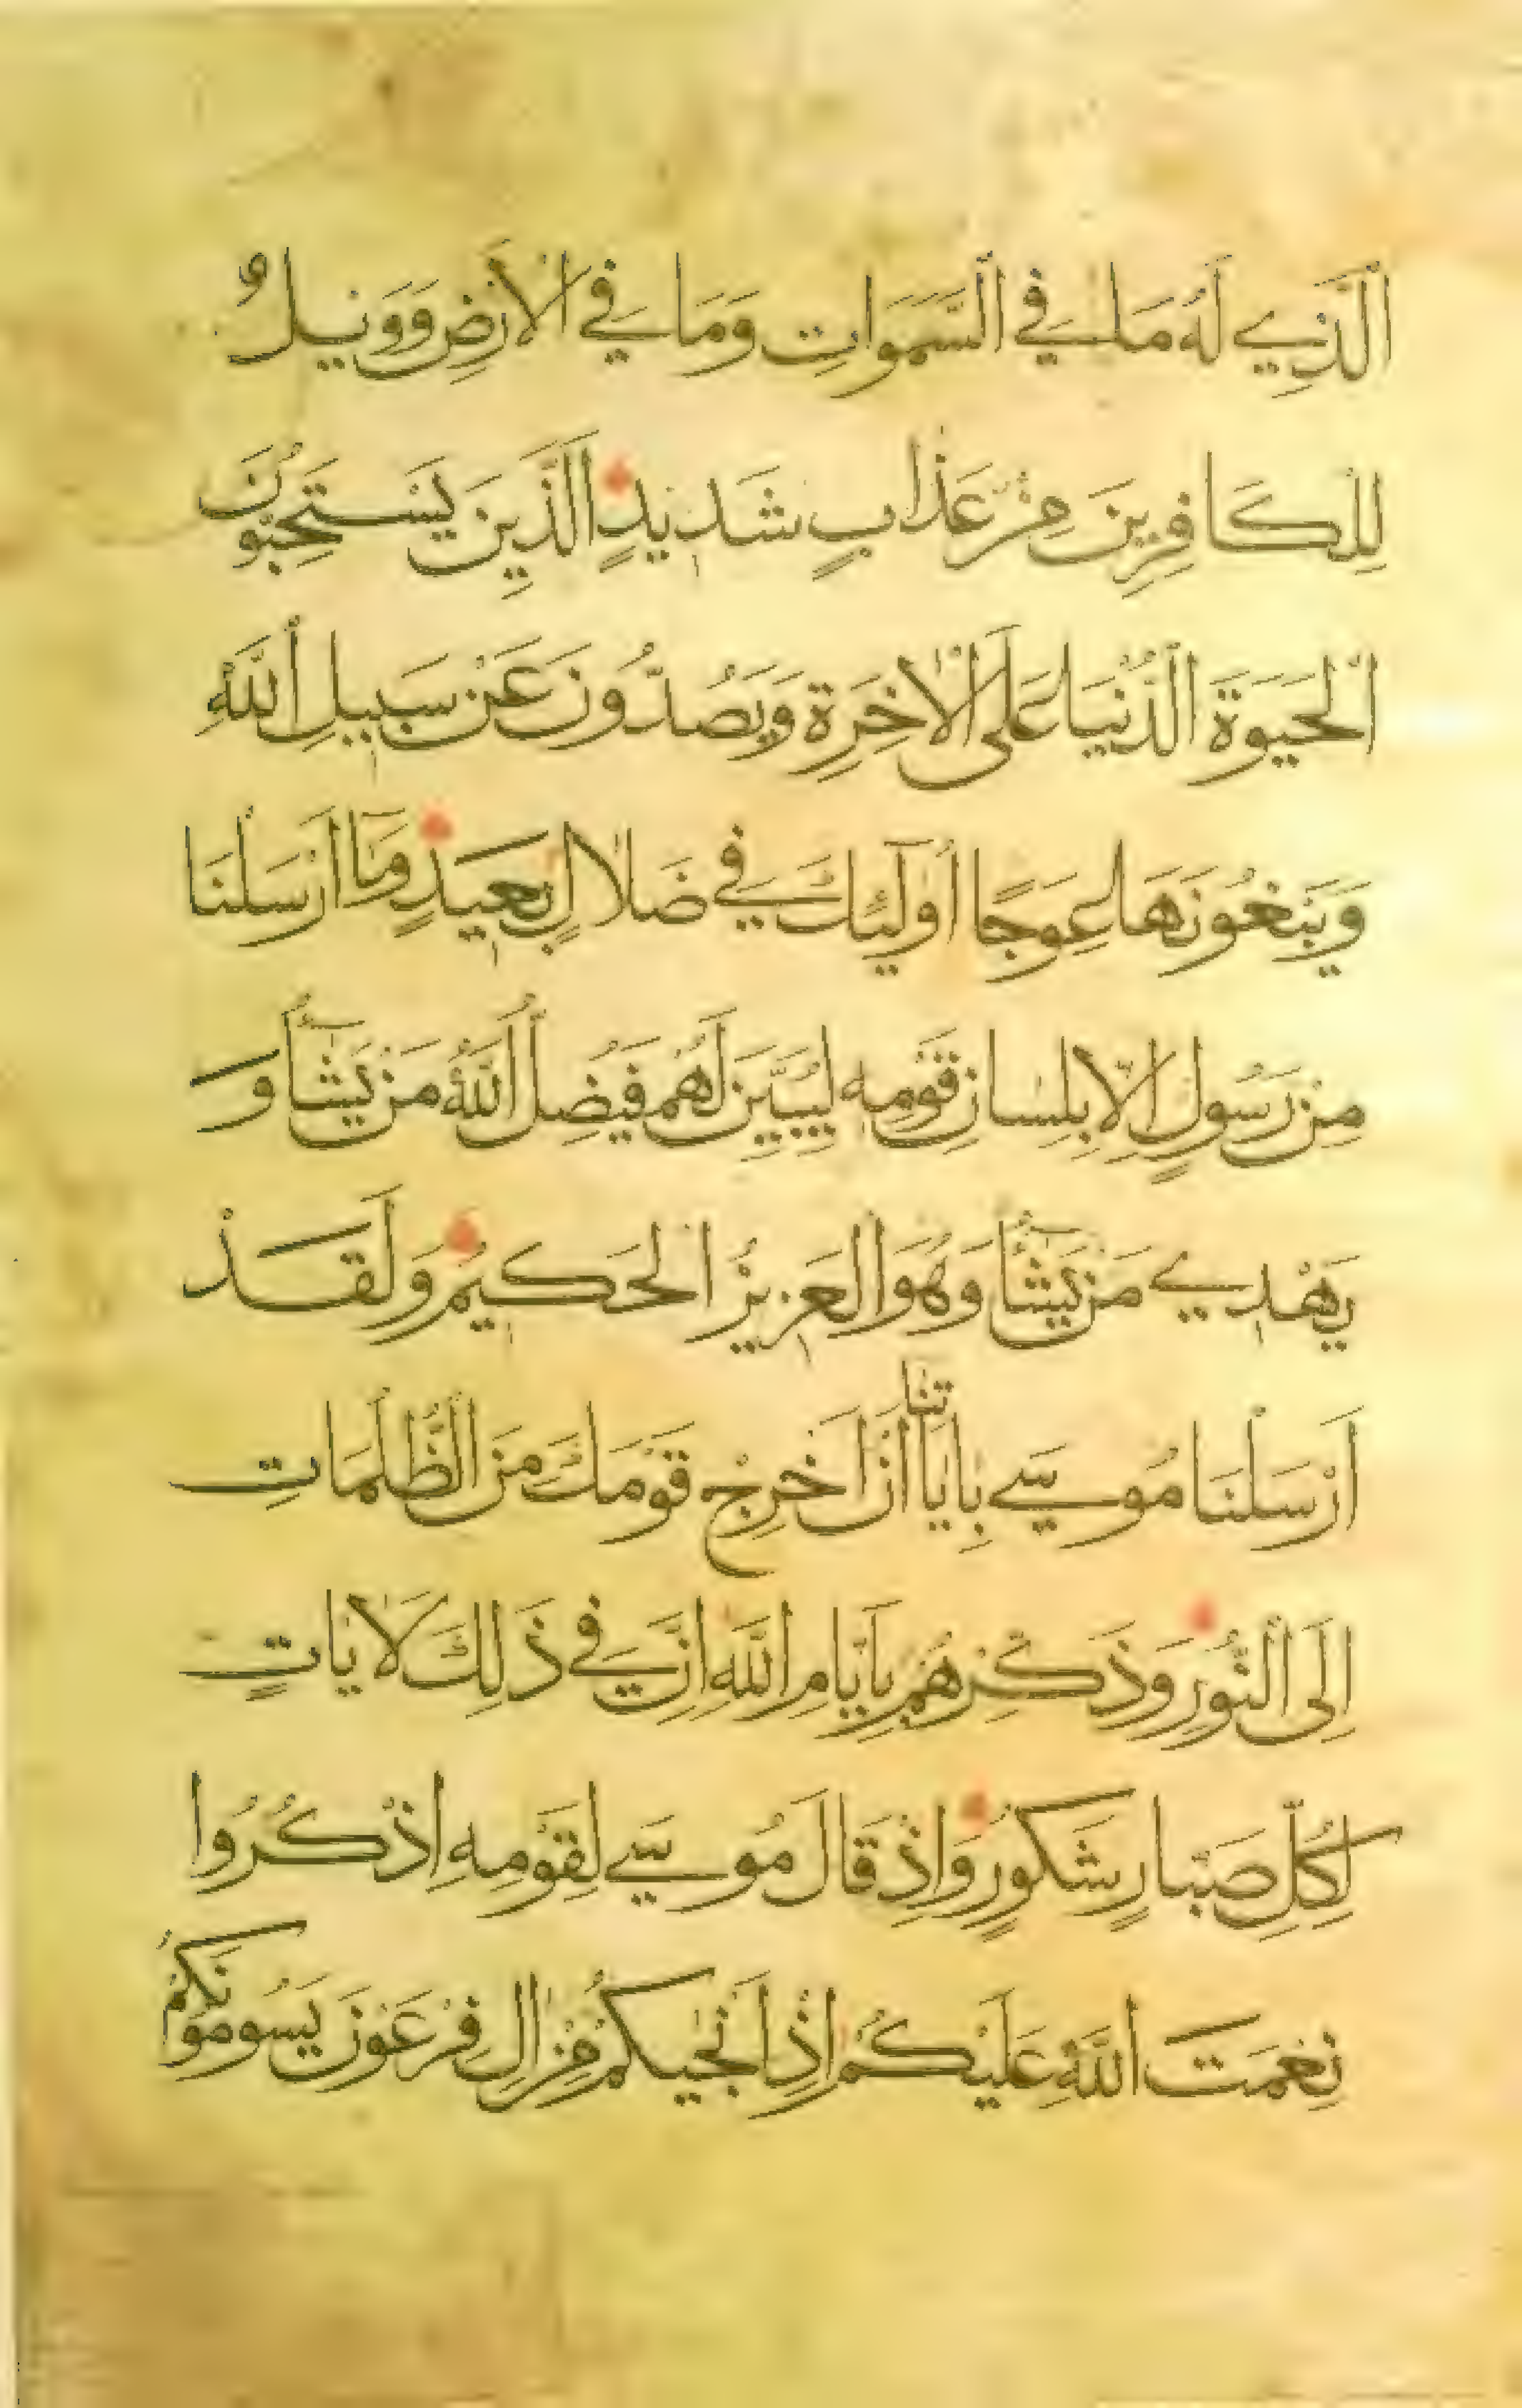 اَلَّذِي لَهُ مَا فِي السَّمَوَاتِ وَمَا فِي الْاَرْضِ وَوَيْلٌ
لِلْكَافِرِينَ مِنْ عَذَابٍ شَدِيدٍ اَلَّذِينَ يَسْتَحِبُّونَ
الْحَيَوةَ الدُّنْيَا عَلَى الْاخِرَةِ وَيَصُدُّونَ عَنْ سَبِيلِ اللَّهِ
وَيَبْغُونَهَا عِوَجًا أُولَئِكَ فِي ضَلَالٍ بَعِيدٍ وَمَا اَرْسَلْنَا
مِنْ رَسُولٍ اِلَّا بِلِسَانِ قَوْمِهِ لِيُبَيِّنَ لَهُمْ فَيُضِلُّ اللَّهُ مَنْ يَشَاءُ وَ
يَهْدِي مَنْ يَشَاءُ وَهُوَ الْعَزِيزُ الْحَكِيمُ وَلَقَدْ
اَرْسَلْنَا مُوسَى بِايَاتِنَا اَنْ اَخْرِجْ قَوْمَكَ مِنَ الظُّلُمَاتِ
اِلَى النُّورِ وَذَكِّرْهُمْ بِاَيَّامِ اللَّهِ اِنَّ فِي ذَلِكَ لَايَاتٍ
لِكُلِّ صَبَّارٍ شَكُورٍ وَاِذْ قَالَ مُوسَى لِقَوْمِهِ اِذْكُرُوا
نِعْمَتَ اللَّهِ عَلَيْكُمْ اِذْ اَنْجَيكُمْ مِنْ الِ فِرْعَوْنَ يَسُومُونَكُمْ